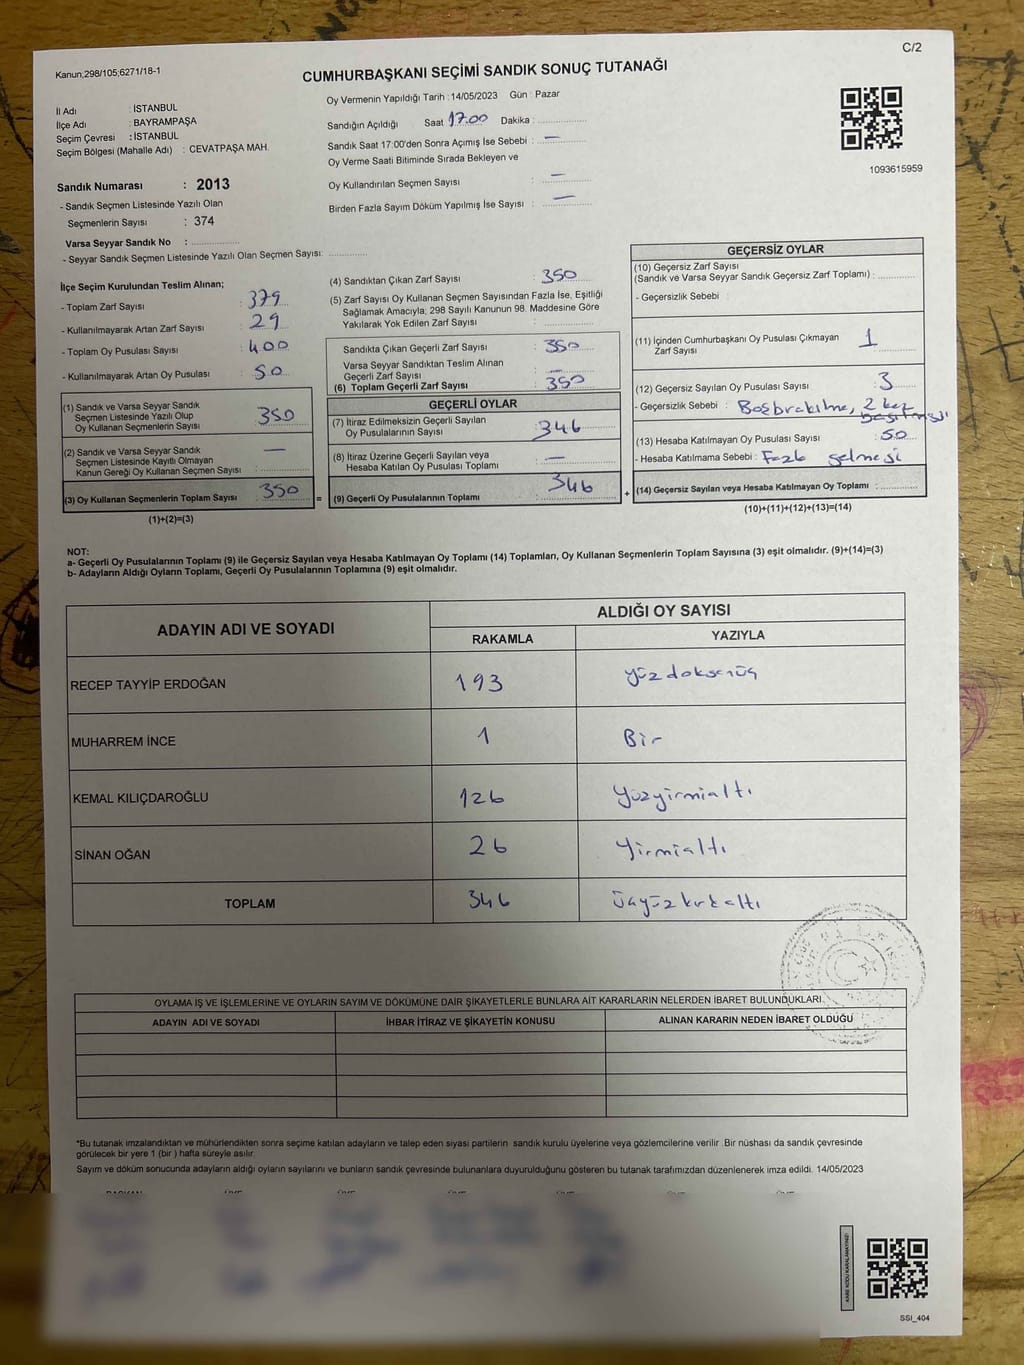 C/2
Kanun,298/105;6271/18-1
CUMHURBAŞKANI SEÇİMİ SANDIK SONUÇ TUTANAĞI
İl Adı : İSTANBUL
İlçe Adı : BAYRAMPAŞA
Seçim Çevresi : İSTANBUL
Seçim Bölgesi (Mahalle Adı) : CEVATPAŞA MAH.
Sandık Numarası : 2013
- Sandık Seçmen Listesinde Yazılı Olan
Seçmenlerin Sayısı : 374
Varsa Seyyar Sandık No :
- Seyyar Sandık Seçmen Listesinde Yazılı Olan Seçmen Sayısı:
Oy Vermenin Yapıldığı Tarih :14/05/2023 Gün : Pazar
Sandığın Açıldığı Saat 17.00 Dakika :
Sandık Saat 17:00'den Sonra Açımış İse Sebebi : —
Oy Verme Saati Bitiminde Sırada Bekleyen ve
Oy Kullandırılan Seçmen Sayısı : —
Birden Fazla Sayım Döküm Yapılmış İse Sayısı : —
1093615959
İlçe Seçim Kurulundan Teslim Alınan;
- Toplam Zarf Sayısı : 379
- Kullanılmayarak Artan Zarf Sayısı : 29
- Toplam Oy Pusulası Sayısı : 400
- Kullanılmayarak Artan Oy Pusulası : 50
(1) Sandık ve Varsa Seyyar Sandık
Seçmen Listesinde Yazılı Olup
Oy Kullanan Seçmenlerin Sayısı : 350
(2) Sandık ve Varsa Seyyar Sandık
Seçmen Listesinde Kayıtlı Olmayan
Kanun Gereği Oy Kullanan Seçmen Sayısı : —
(3) Oy Kullanan Seçmenlerin Toplam Sayısı : 350 =
(1)+(2)=(3)
(4) Sandıktan Çıkan Zarf Sayısı : 350
(5) Zarf Sayısı Oy Kullanan Seçmen Sayısından Fazla İse, Eşitliği
Sağlamak Amacıyla; 298 Sayılı Kanunun 98. Maddesine Göre
Yakılarak Yok Edilen Zarf Sayısı :
Sandıkta Çıkan Geçerli Zarf Sayısı : 350
Varsa Seyyar Sandıktan Teslim Alınan
Geçerli Zarf Sayısı : —
(6) Toplam Geçerli Zarf Sayısı : 350
GEÇERLİ OYLAR
(7) İtiraz Edilmeksizin Geçerli Sayılan
Oy Pusulalarının Sayısı : 346
(8) İtiraz Üzerine Geçerli Sayılan veya
Hesaba Katılan Oy Pusulası Toplamı : —
(9) Geçerli Oy Pusulalarının Toplamı : 346 +
GEÇERSİZ OYLAR
(10) Geçersiz Zarf Sayısı
(Sandık ve Varsa Seyyar Sandık Geçersiz Zarf Toplamı) :
- Geçersizlik Sebebi :
(11) İçinden Cumhurbaşkanı Oy Pusulası Çıkmayan
Zarf Sayısı : 1
(12) Geçersiz Sayılan Oy Pusulası Sayısı : 3
- Geçersizlik Sebebi : Boş bırakılma, 2 kez
basılması
(13) Hesaba Katılmayan Oy Pusulası Sayısı : 50
- Hesaba Katılmama Sebebi : Fazla gelmesi
(14) Geçersiz Sayılan veya Hesaba Katılmayan Oy Toplamı :
(10)+(11)+(12)+(13)=(14)
NOT:
a- Geçerli Oy Pusulalarının Toplamı (9) ile Geçersiz Sayılan veya Hesaba Katılmayan Oy Toplamı (14) Toplamları, Oy Kullanan Seçmenlerin Toplam Sayısına (3) eşit olmalıdır. (9)+(14)=(3)
b- Adayların Aldığı Oyların Toplamı, Geçerli Oy Pusulalarının Toplamına (9) eşit olmalıdır.
ADAYIN ADI VE SOYADI
ALDIĞI OY SAYISI
RAKAMLA YAZIYLA
RECEP TAYYİP ERDOĞAN 193 yüzdoksanüç
MUHARREM İNCE 1 Bir
KEMAL KILIÇDAROĞLU 126 yüzyirmialtı
SİNAN OĞAN 26 yirmialtı
TOPLAM 346 üçyüzkırkaltı
OYLAMA İŞ VE İŞLEMLERİNE VE OYLARIN SAYIM VE DÖKÜMÜNE DAİR ŞİKAYETLERLE BUNLARA AİT KARARLARIN NELERDEN İBARET BULUNDUKLARI
ADAYIN ADI VE SOYADI İHBAR İTİRAZ VE ŞİKAYETİN KONUSU ALINAN KARARIN NEDEN İBARET OLDUĞU
*Bu tutanak imzalandıktan ve mühürlendikten sonra seçime katılan adayların ve talep eden siyasi partilerin sandık kurulu üyelerine veya gözlemcilerine verilir .Bir nüshası da sandık çevresinde
görülecek bir yere 1 (bir ) hafta süreyle asılır.
Sayım ve döküm sonucunda adayların aldığı oyların sayılarını ve bunların sandık çevresinde bulunanlara duyurulduğunu gösteren bu tutanak tarafımızdan düzenlenerek imza edildi. 14/05/2023
KARE KODU KARALAMAYINIZ!
SSI_404